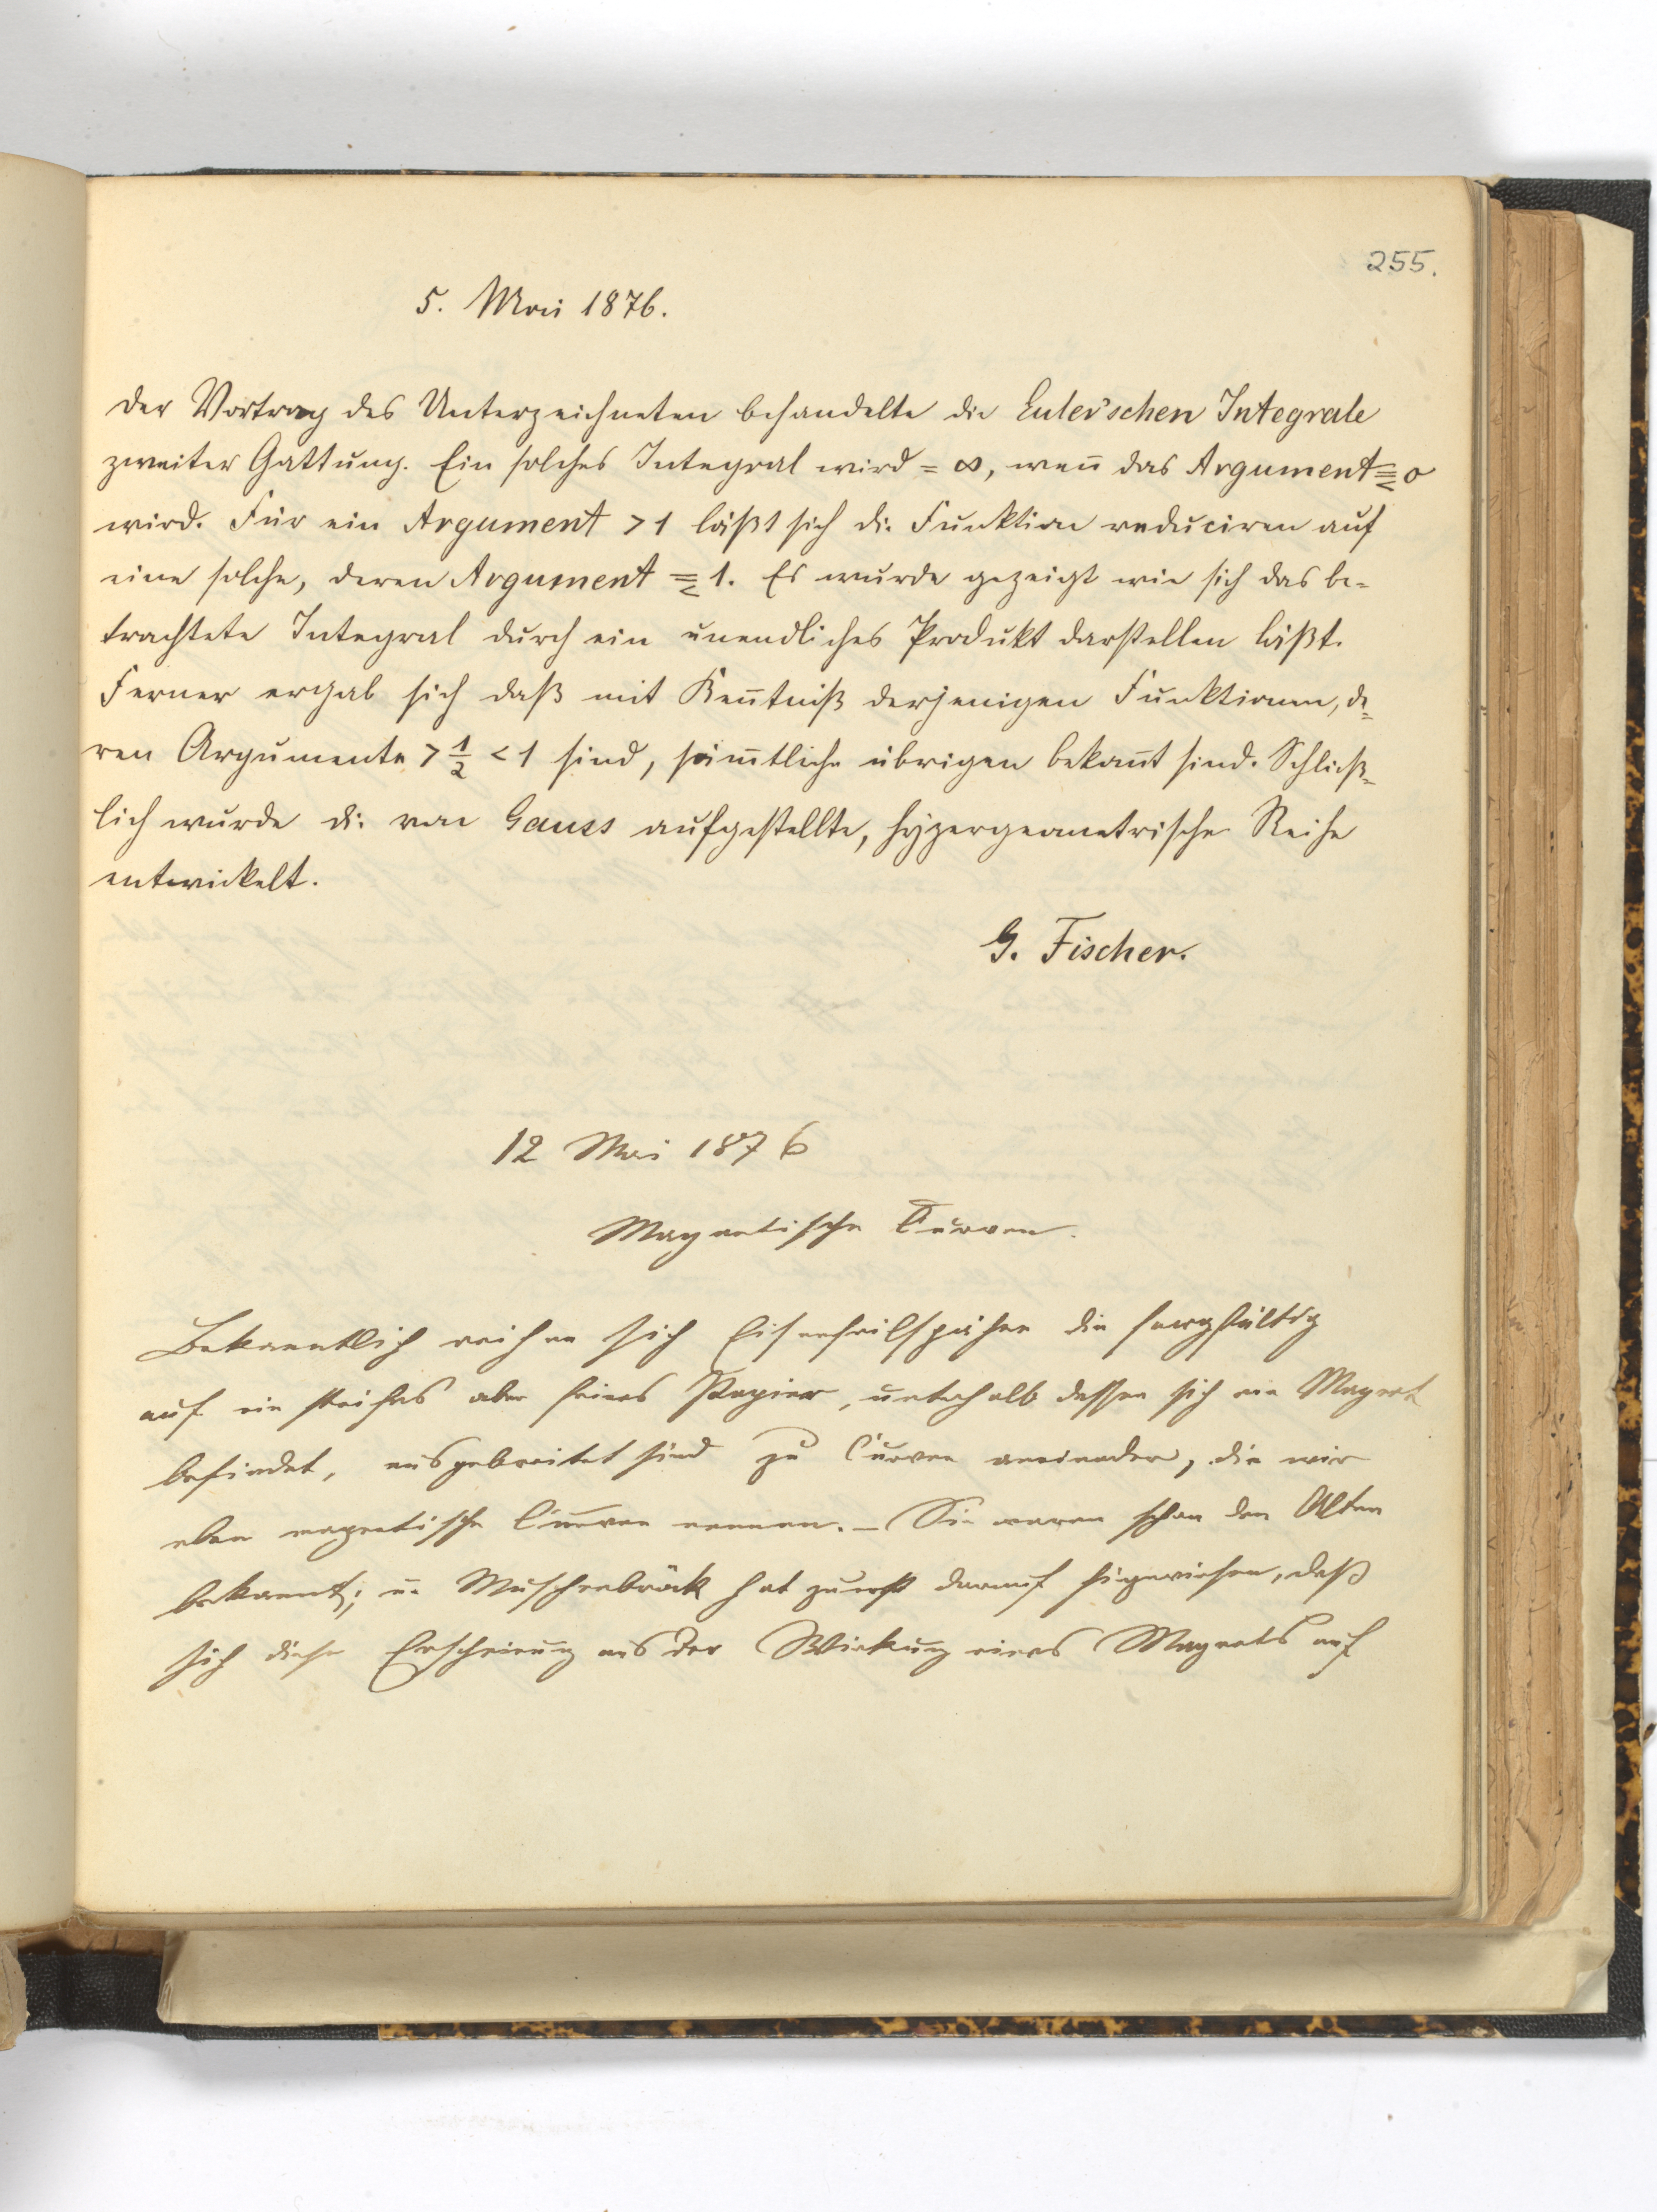 255.
5. Mai 1876.
Der Vortrag des Unterzeichneten behandelte die Euler'schen Integrale
zweiter Gattung. Ein solches Integral wird = ∞, weñ das Argument ≦ 0
wird. Für ein Argument > 1 läßt sich die Funktion reduciren auf
eine solche, deren Argument ≦ 1. Es wurde gezeigt wie sich das be-
trachtete Integral durch ein unendliches Produkt darstellen läßt.
Ferner ergab sich daß mit Keñtniß derjenigen Funktionen, de-
ren Argumente > 1/2 < 1 sind, säm̃tliche übrigen bekañt sind. Schließ-
lich wurde die von Gauss aufgestellte, hypergeometrische Reihe
entwickelt.
G. Fischer.
12 Mai 1876
Magnetische Curven.
Bekanntlich reihen sich Eisenfeilspähne die sorgfältig
auf ein steifes aber feines Papier, unterhalb dessen sich ein Magnet
befindet, ausgebreitet sind zu Curven aneinander, die wir
eben magnetische Curven nennen. – Sie waren schon den Alten
bekannt; u. Muschenbröck hat zuerst darauf hingewiesen, daß
sich diese Erscheinung aus der Wirkung eines Magnets auf